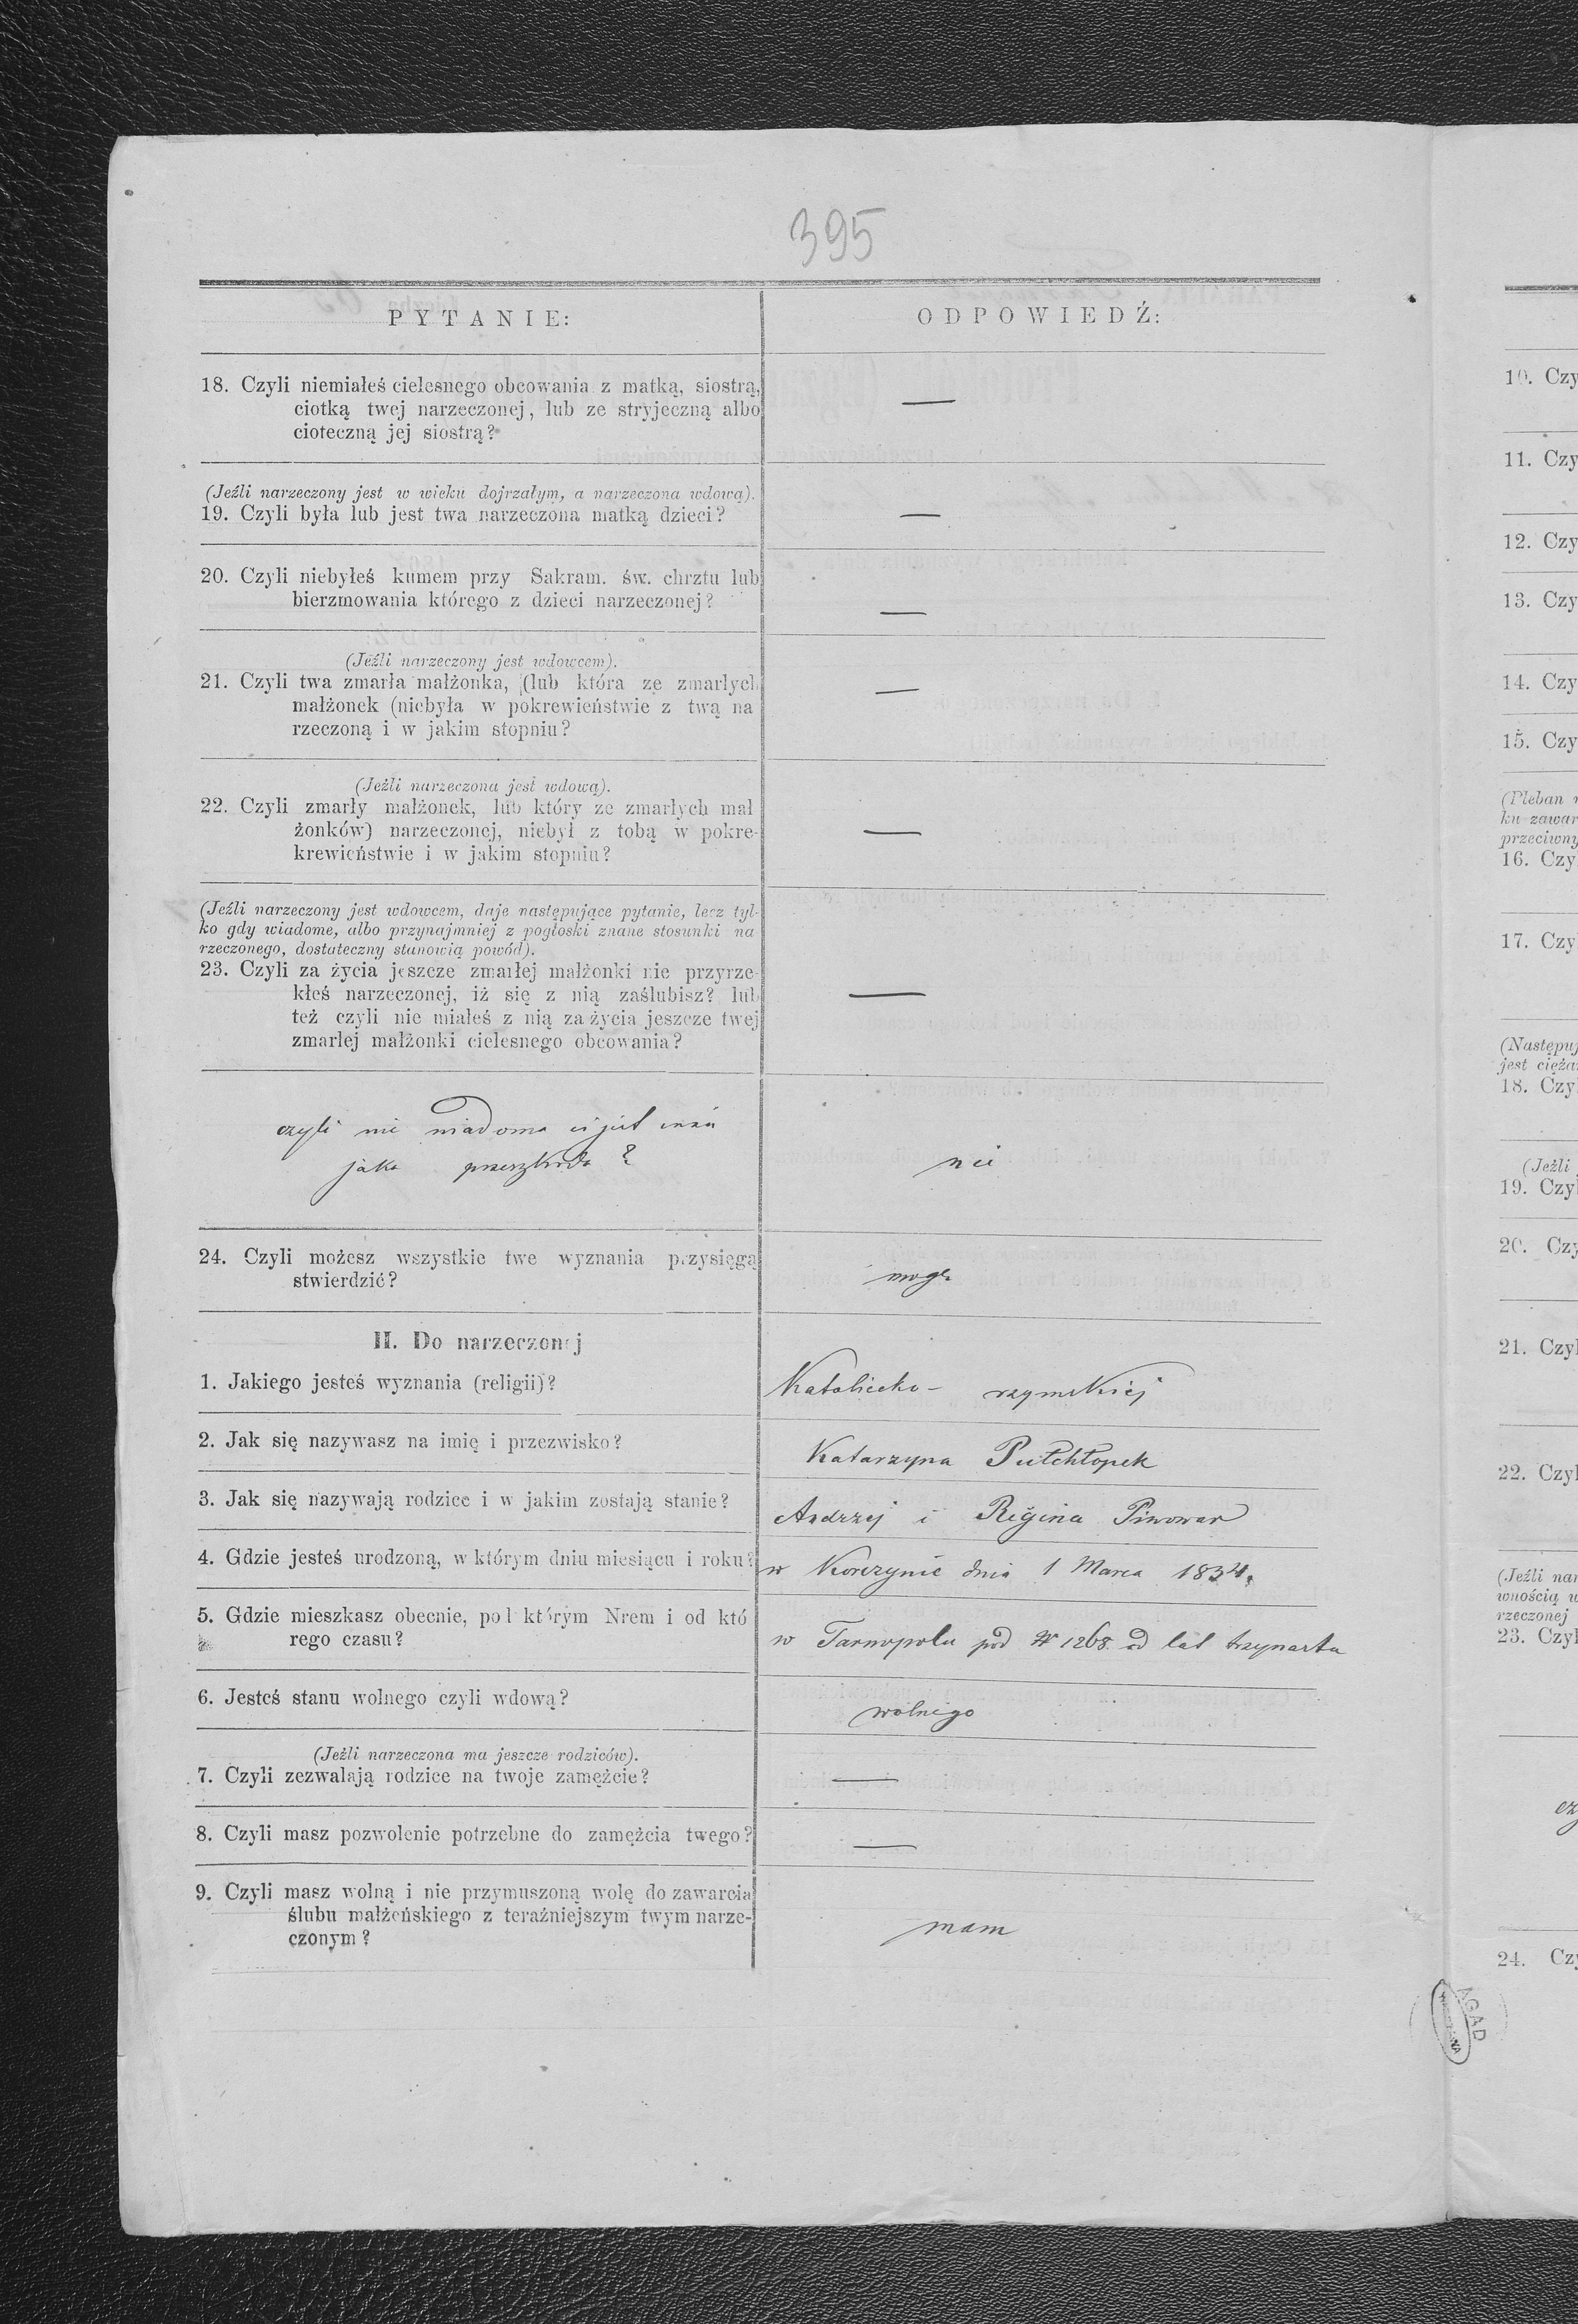 395
PYTANIE:
ODPOWIEDŹ:
18. Czyli niemiałeś cielesnego obcowania z matką, siostrą,
ciotką twej narzeczonej, lub ze stryjeczną albo
cioteczną jej siostrą?
—
(Jeźli narzeczony jest w wieku dojrzałym, a narzeczona wdową).
19. Czyli była lub jest twa narzeczona matką dzieci?
—
20. Czyli niebyłeś kumem przy Sakram. św. chrztu lub
bierzmowania którego z dzieci narzeczonej?
—
(Jeźli narzeczony jest wdowcem).
21. Czyli twa zmarła małżonka, (lub która ze zmarłych
małżonek (niebyła w pokrewieństwie z twą na
rzeczoną i w jakim stopniu?
—
(Jeżli narzeczona jest wdową).
22. Czyli zmarły małżonek, lub który ze zmarłych mał
żonków) narzeczonej, niebył z tobą w pokre-
krewieństwie i w jakim stopniu?
—
(Jeźli narzeczony jest wdowcem, daje następujące pytanie, lecz tyl-
ko gdy wiadome, albo przynajmniej z pogłoski znane stosunki na
rzeczonego, dostateczny stanowią powód).
23. Czyli za życia jeszcze zmarłej małżonki nie przyrze-
kłeś narzeczonej, iż się z nią zaślubisz? lub
też czyli nie miałeś z nią za życia jeszcze twej
zmarłej małżonki cielesnego obcowania?
—
czyli nie wiadoma ci jest inna
jaka przeszkoda?
nie
24. Czyli możesz wszystkie twe wyznania przysięgą
stwierdzić?
mogę
II. Do narzeczonej
1. Jakiego jesteś wyznania (religii)?
Katolicko - rzymskiej
2. Jak się nazywasz na imię i przezwisko?
Katarzyna Pułchłopek
3. Jak się nazywają rodzice i w jakim zostają stanie?
Andrzej i Regina Piwowar
4. Gdzie jesteś urodzoną, w którym dniu miesiącu i roku?
w Korczynie dnia 1 Marca 1834.
5. Gdzie mieszkasz obecnie, pod którym Nrem i od któ
rego czasu?
w Tarnopolu pod N 1268 od lat trzynastu
6. Jesteś stanu wolnego czyli wdową?
wolnego
(Jeźli narzeczona ma jeszcze rodziców).
7. Czyli zezwalają rodzice na twoje zamęźcie?
—
8. Czyli masz pozwolenie potrzebne do zamężcia twego?
—
9. Czyli masz wolną i nie przymuszoną wolę do zawarcia
ślubu małżeńskiego z teraźniejszym twym narze-
czonym?
mam
10. Czy
11. Czy
12. Czy
13. Czy
14. Czy
15. Czy
(Pleban
ku zawar
przeciwny
16. Czy
17. Czy
(Następuj
jest cięża
18. Czy
(Jeźli
19. Czyl
20. Czy
21. Czyl
22. Czyl
(Jeźli nar
wnością w
rzeczonej
23. Czyl
cz
24. Czy
AGAD
WARSZAWA